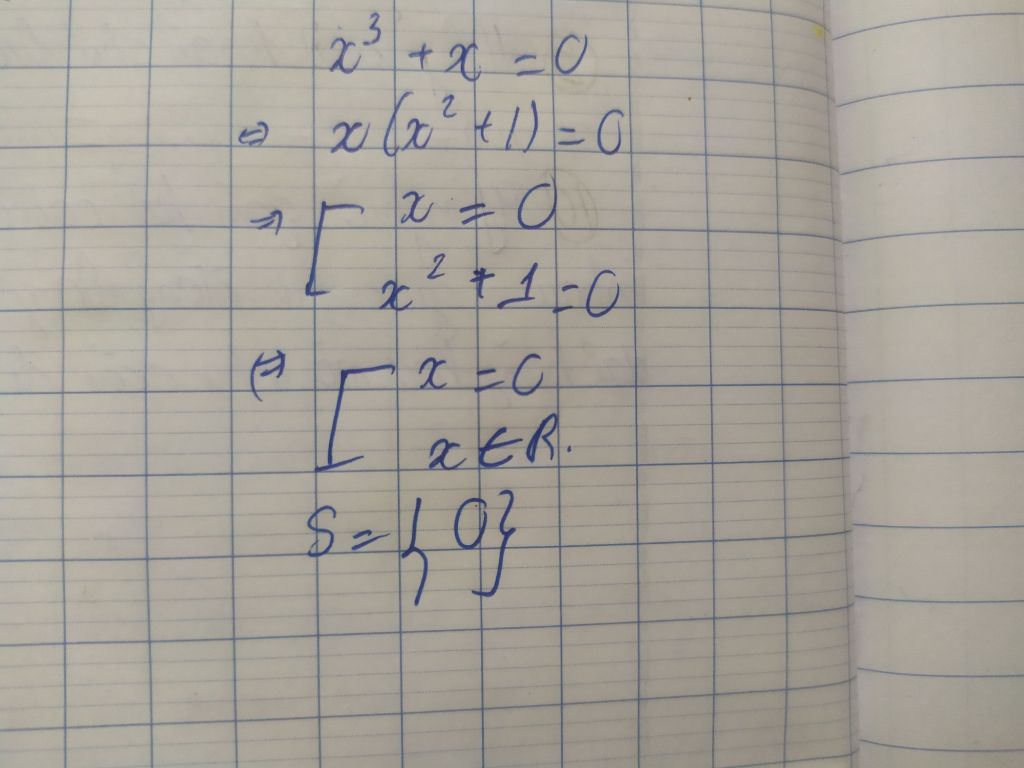 x³ + x = 0
⇔ x(x² + 1) = 0
⇒ [ x = 0
x² + 1 = 0
⇔ [ x = 0
x ∈ R.
S = {0}